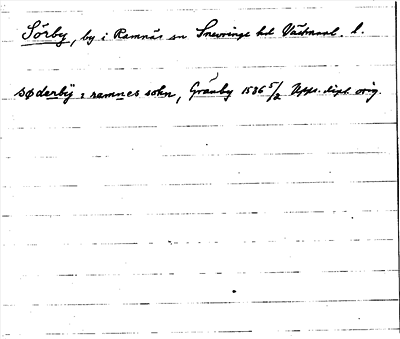 Sörby, by i Ramnäs sn Snevringe hd Västmanl. l.
søderbÿ i ramnes sokn, Gränby 1536 5/2 Upps. dipl. orig.